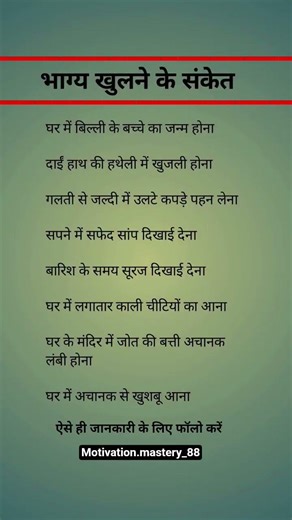 भाग्य खुलने के संकेत
घर में बिल्ली के बच्चे का जन्म होना
दाईं हाथ की हथेली में खुजली होना
गलती से जल्दी में उलटे कपड़े पहन लेना
सपने में सफेद सांप दिखाई देना
बारिश के समय सूरज दिखाई देना
घर में लगातार काली चीटियों का आना
घर के मंदिर में जोत की बत्ती अचानक
लंबी होना
घर में अचानक से खुशबू आना
ऐसे ही जानकारी के लिए फॉलो करें
Motivation.mastery_88